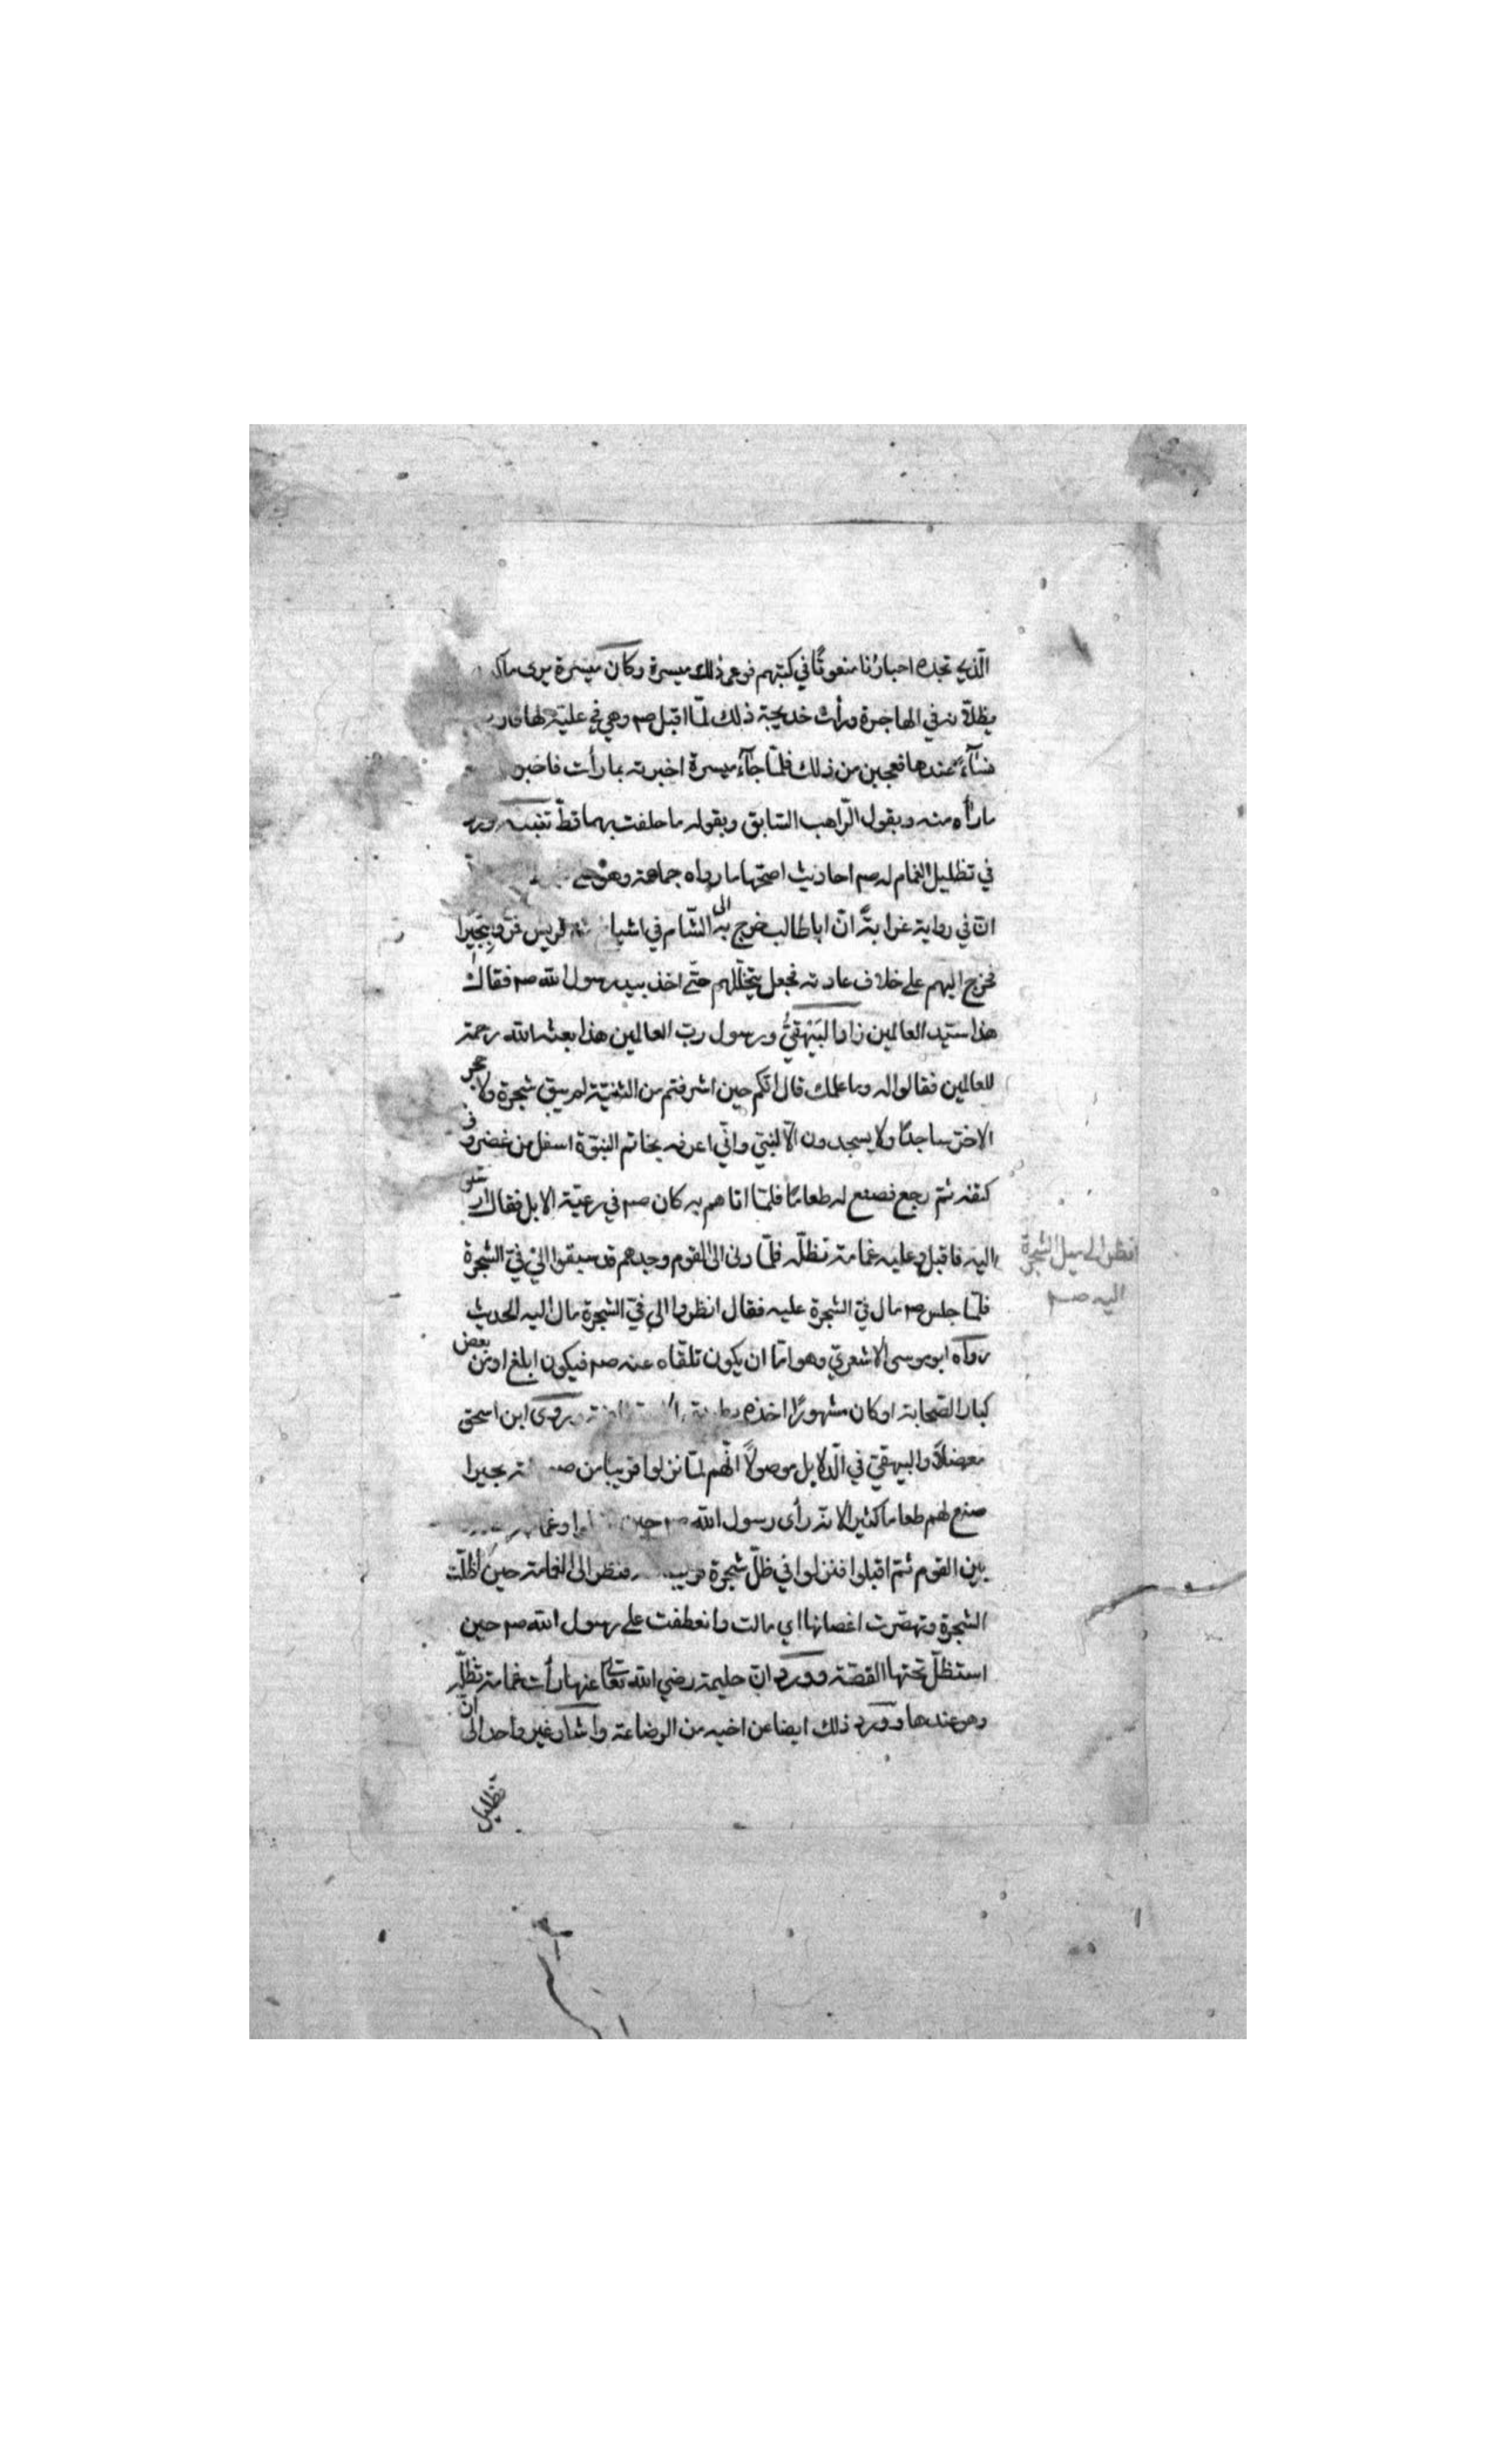 الّذي تجده احبارنا منعوتًا في كتبهم فوعى ذلك ميسرة وكان ميسرة يرى
يظلّانه في الهاجرة ورأت خديجة ذلك لمّا اقبل صم وهي في علية لها
نسآءٌ عندها فعجبن من ذلك فلمّا جآء ميسرة اخبرته بما رأت فاخبر
ما رأه منه وبقول الرّاهب السّابق وبقوله ما حلفت بهما قطّ
في تظليل الغمام له صم احاديث اصحّها ما رواه جماعة وهو
انّ في رواية غرابةً انّ ابا طالب خرج به الى الشّام في قريش فمرّوا ببحيرا
فخرج اليهم على خلاف عادته فجعل يتخلّلهم حتّى اخذ بيد رسول الله صم فقال
هذا سيّد العالمين زاد البَيْهَقيُّ ورسول ربّ العالمين هذا بعثه الله رحمة
للعالمين فقالوا له وما علمك قال انّكم حين اشرفتم من الثنيّة لم يبق شجرة ولا حجر
الاخرّ ساجدًا ولا يسجدون الّا لنبيّ وانّي اعرفه بخاتم النبوّة اسفل من غضروف
كتفه ثم رجع فصنع له طعامًا فلمّا اتاهم به كان صم في رعيّة الابل فقال ارسلوا
اليه فاقبل وعليه غمامة تظلّه فلمّا دنى الى القوم وجدهم قد سبقوا الى فيّ الشجرة
فلمّا جلس صم مال فيّ الشجرة عليه فقال انظروا الى فيّ الشجرة مال اليه الحديث
رواه ابو موسى الاشعريّ وهو امّا ان يكون تلقّاه عنه صم فيكون ابلغ او من بعض
كبار الصّحابة او كان مشهورًا اخذه وروى ابن اسحق
معضلًا والبيهقيّ في الدّلايل موصولًا انّهم لمّا نزلوا قريبا من بحيرا
صنع لهم طعاما كثيرا لانّه رأى رسول الله صم حين
بين القوم ثم اقبلوا فنزلوا في ظلّ شجرة فنظر الى الغمامة حين اظلّت
الشجرة وتهصّرت اغصانها اي مالت وانعطفت على رسول الله صم حين
استظلّ تحتها القصّة وورد انّ حليمة رضي الله تعالى عنها رأت غمامة تظلّه
وهو عندها وورد ذلك ايضا عن اخيه من الرضاعة واشار غير واحد الى انّ
تظليل
انظر الى ميل الشجرة
اليه صم